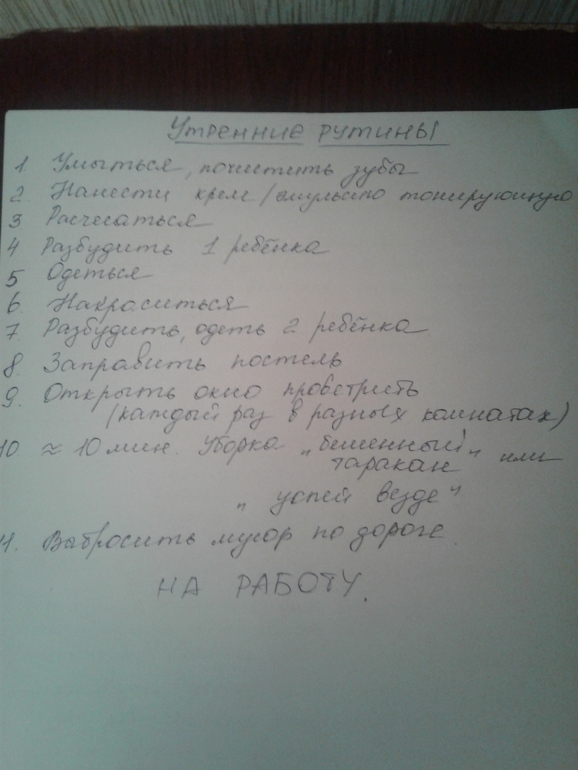 Утренние рутины
1. Умыться, почистить зубы
2. Нанести крем/эмульсию тонирующую
3 Расчесаться
4 Разбудить 1 ребёнка
5 Одеться
6 Накраситься
7. Разбудить, одеть 2 ребёнка.
8. Заправить постель
9. Открыть окно проветрить
(каждый раз в разных комнатах)
10 ≈ 10 мин. Уборка „бешенный
таракан" или
„успей везде"
11. Выбросить мусор по дороге
НА РАБОТУ.